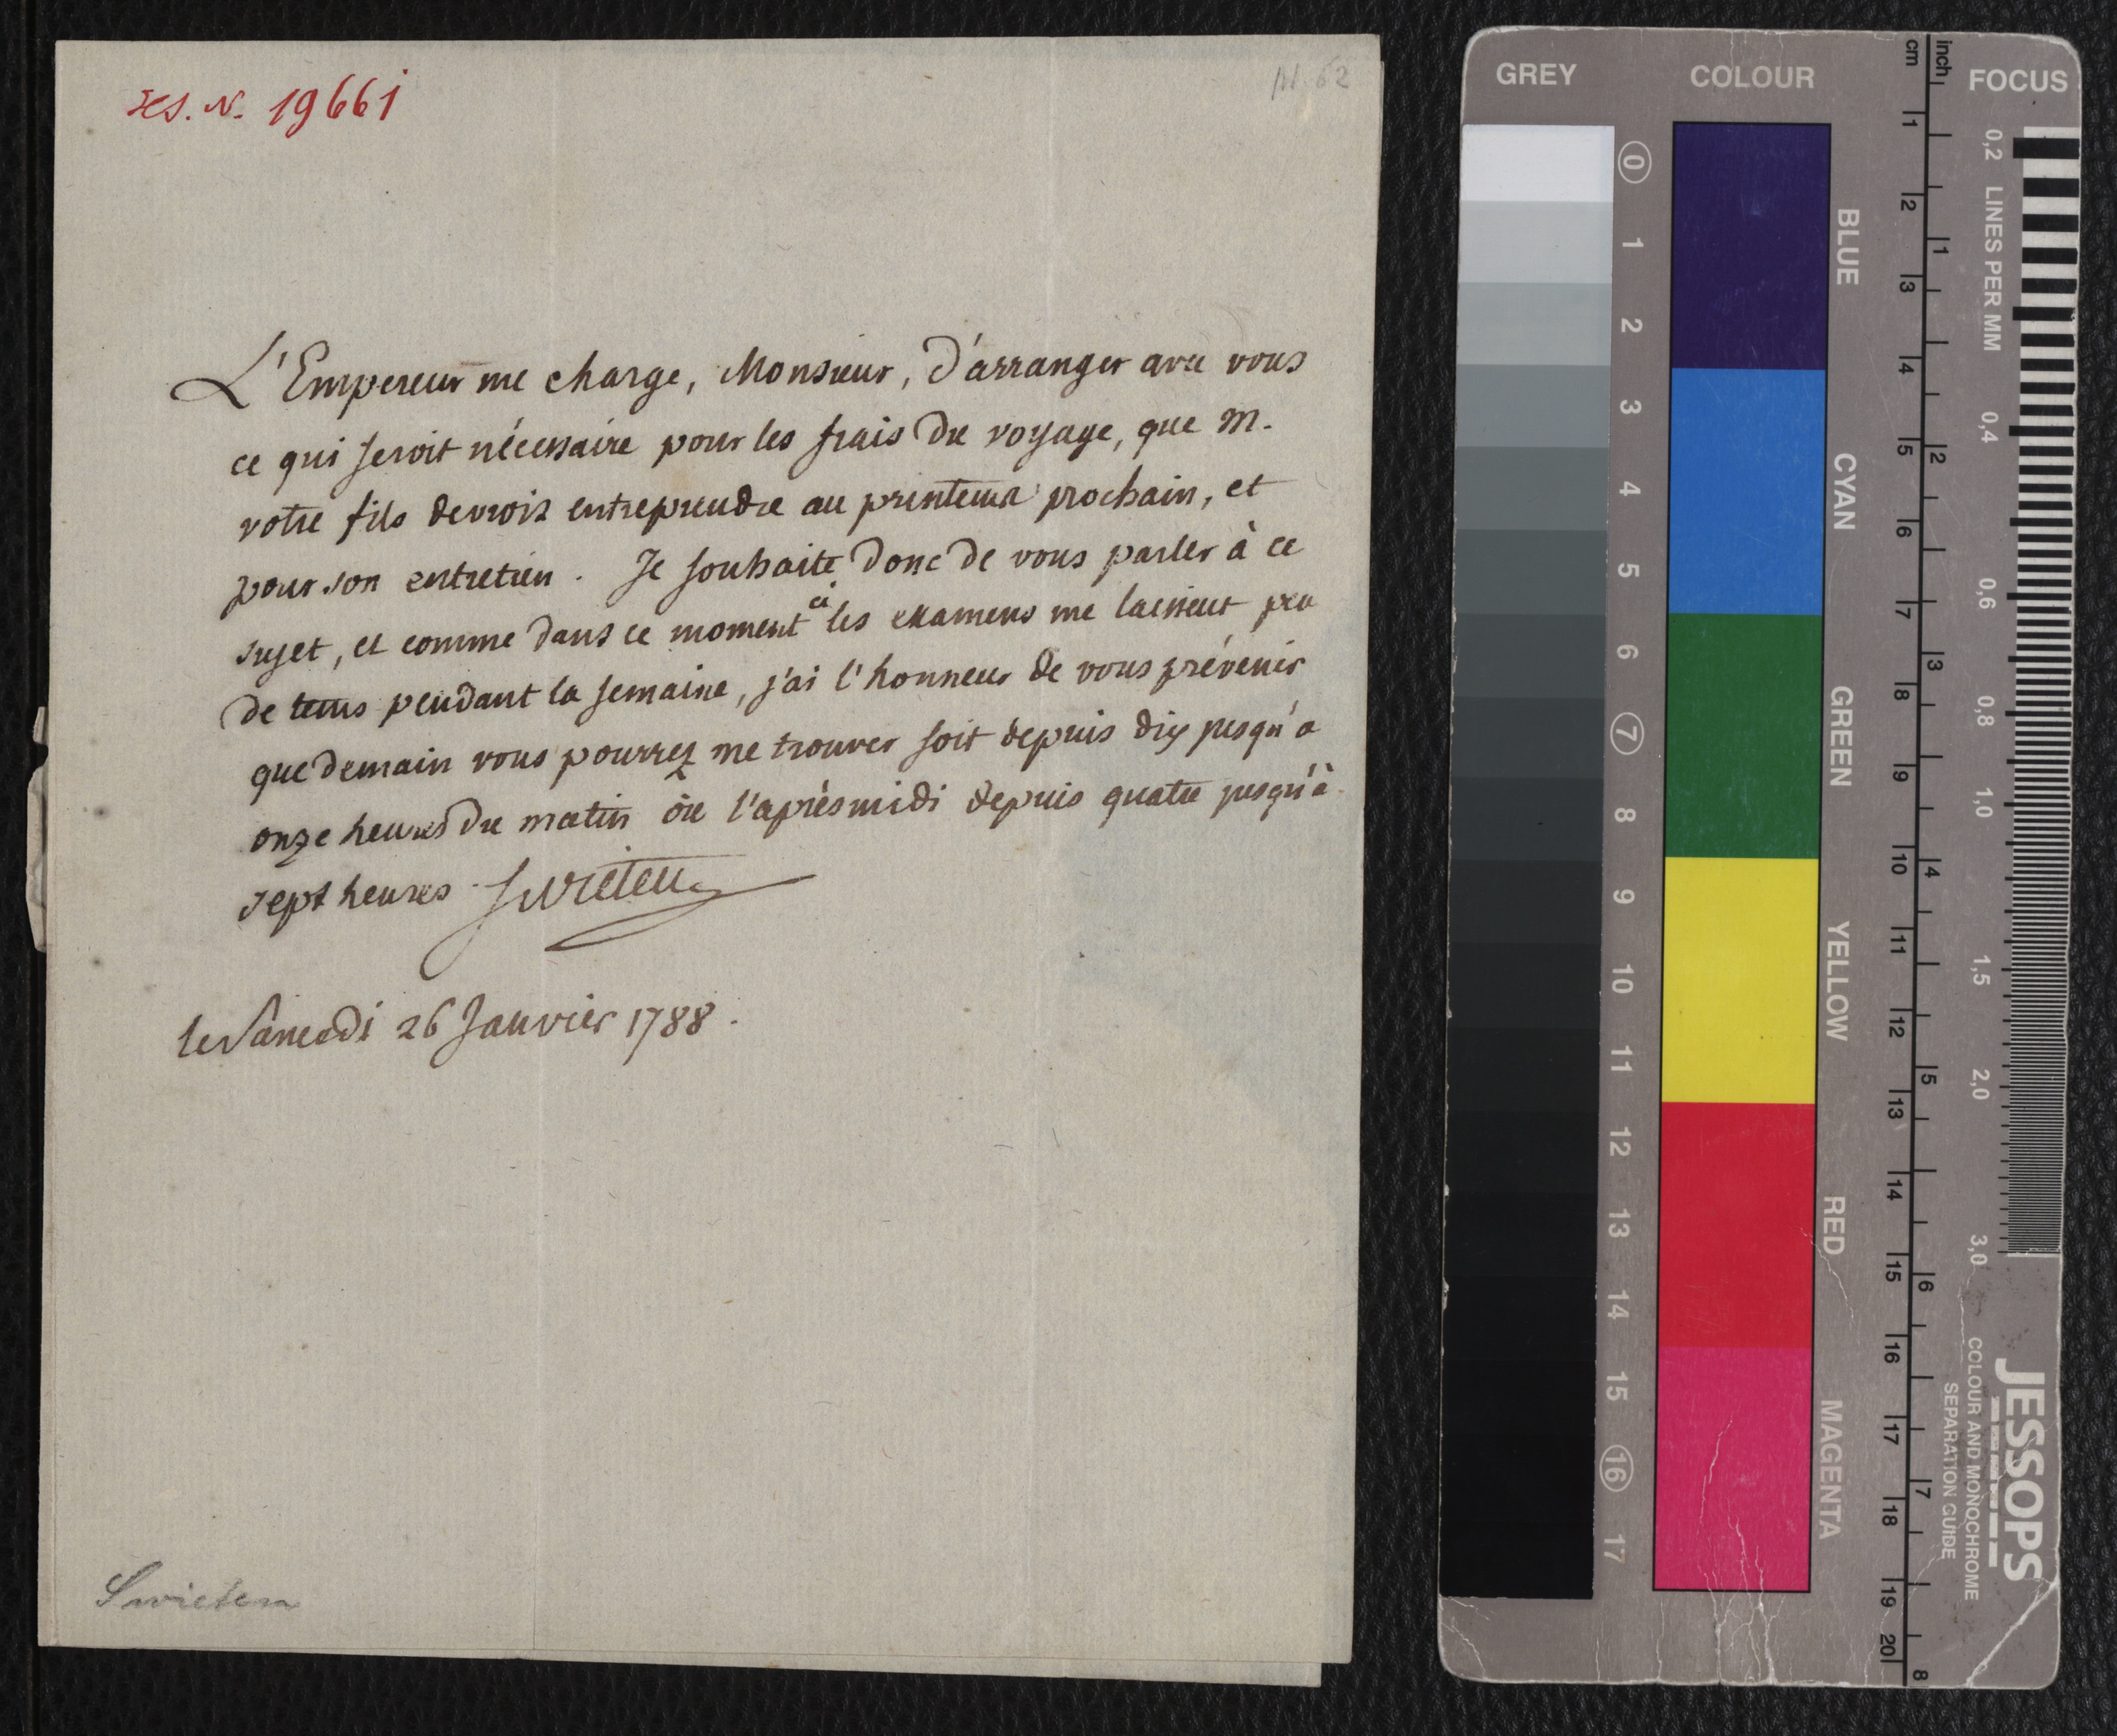 Hs. N. 19661
N. 62
L'Empereur me charge, Monsieur, d'arranger avec vous
ce qui seroit nécessaire pour les frais du voyage, que M.
votre fils devroit entreprendre au printems prochain, et
pour son entretien. Je souhaite donc de vous parler à ce
sujet, et comme dans ce moment ci les examens me laissent peu
de tems pendant la semaine, j'ai l'honneur de vous prévenir
que demain vous pourrez me trouver soit depuis dix jusqu'a
onze heures du matin ou l'aprésmidi depuis quatre jusqu'à
sept heures. Swieten
le Samedi 26 Janvier 1788.
Swieten
GREY
COLOUR
cm
inch
FOCUS
0 1 2 3 4 5 6 7 8 9 10 11 12 13 14 15 16 17
BLUE
CYAN
GREEN
YELLOW
RED
MAGENTA
1 2 3 4 5 6 7 8 9 10 11 12 13 14 15 16 17 18 19 20
1 2 3 4 5 6 7 8
0,2 LINES PER MM 0,4 0,6 0,8 1,0 1,5 2,0 3,0
JESSOPS
COLOUR AND MONOCHROME
SEPARATION GUIDE